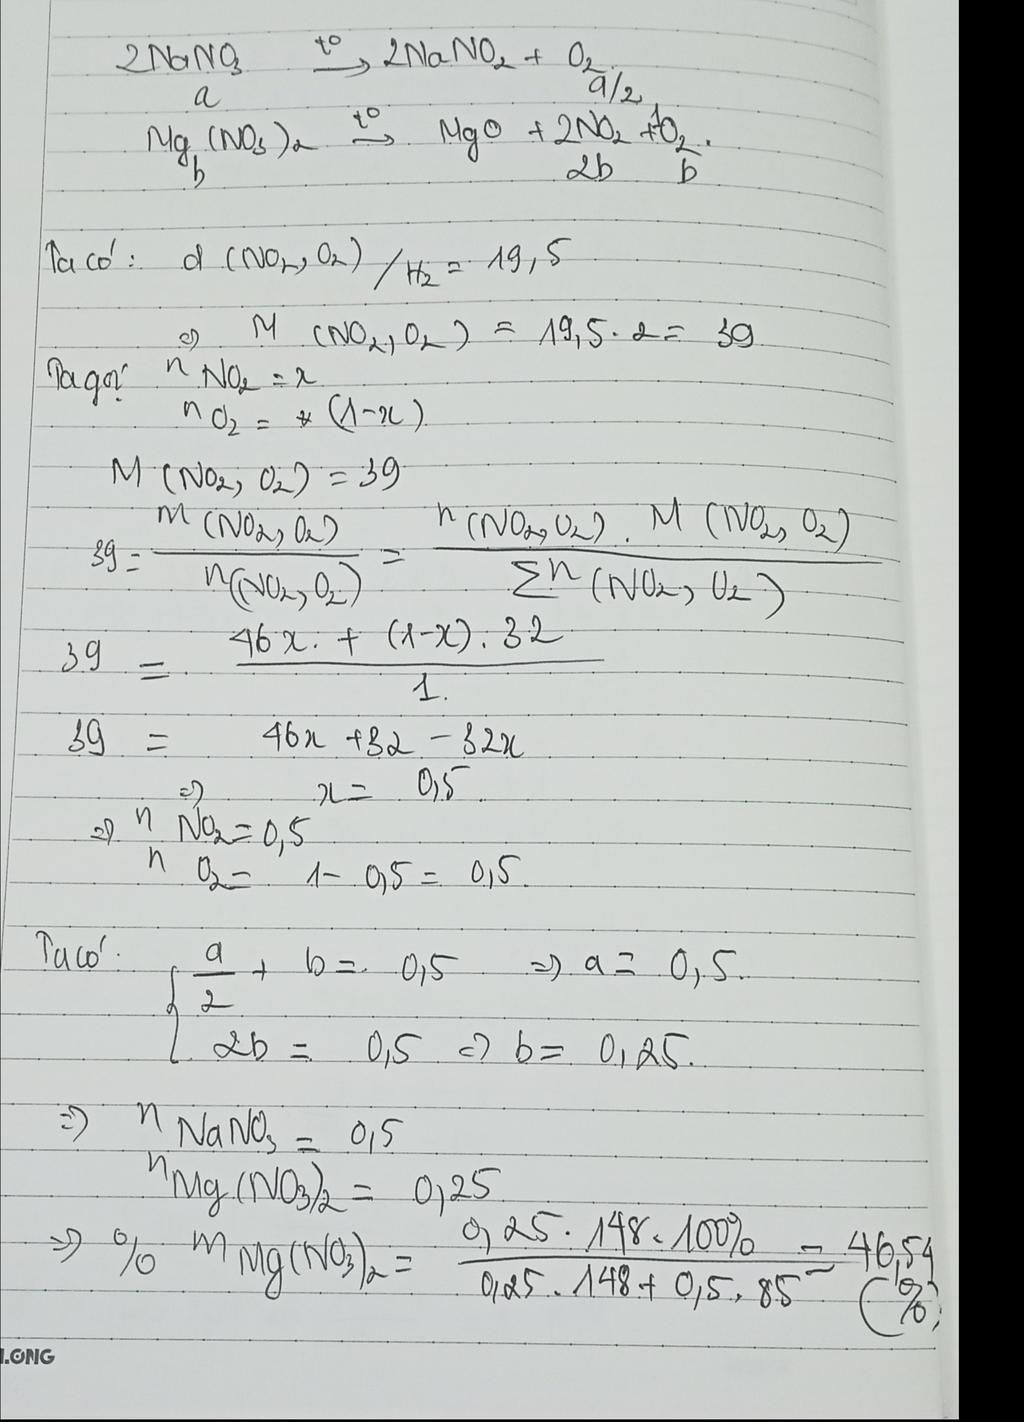 2NaNO3 t° → 2NaNO2 + O2.
a a/2
Mg(NO3)2 t° → MgO + 2NO2 + O2.
b 2b b
Ta có: d (NO2, O2) / H2 = 19,5
⇒ M (NO2, O2) = 19,5 . 2 = 39
Ta gọi n NO2 = x
n O2 = (1-x)
M (NO2, O2) = 39
39 = m (NO2, O2) / n (NO2, O2) = n (NO2, O2) . M (NO2, O2) / Σn (NO2, O2)
39 = 46x. + (1-x). 32 / 1.
39 = 46x + 32 - 32x
⇒ x = 0,5
⇒ n NO2 = 0,5
n O2 = 1 - 0,5 = 0,5.
Ta có: { a/2 + b = 0,5 ⇒ a = 0,5.
2b = 0,5 ⇒ b = 0,25.
⇒ n NaNO3 = 0,5
n Mg(NO3)2 = 0,25
⇒ % m Mg(NO3)2 = 0,25 . 148 . 100% / 0,25 . 148 + 0,5 . 85 = 46,54
(%)
LONG